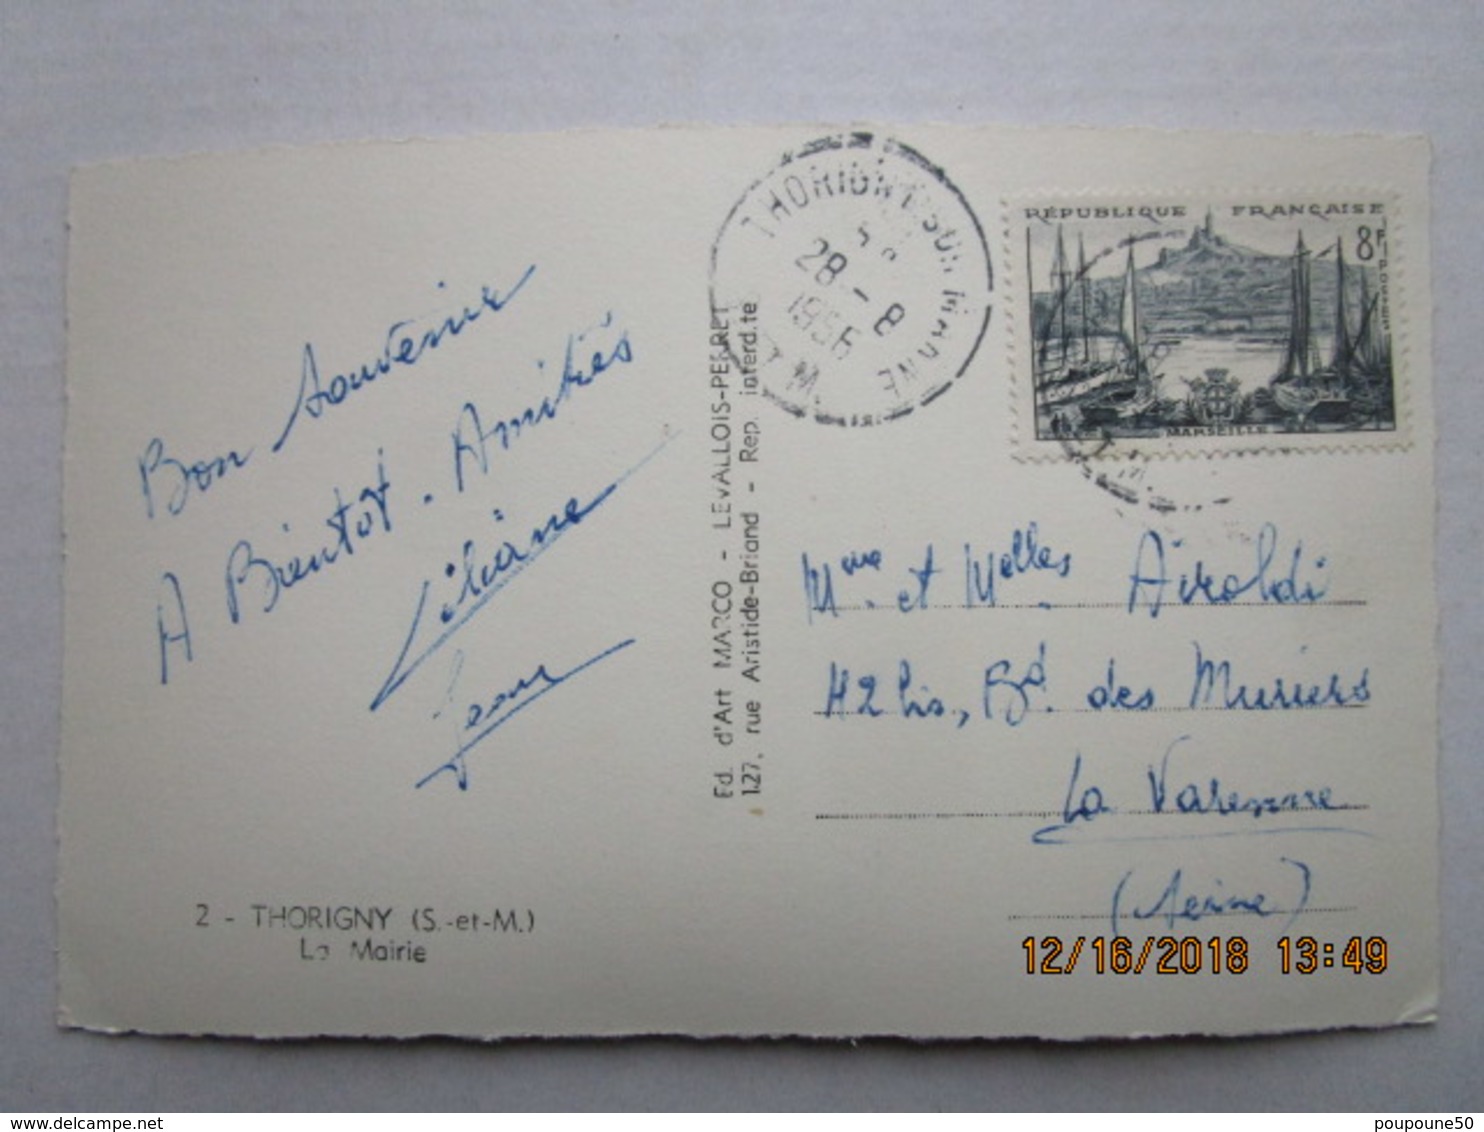 Bon Souvenir
A Bientot. Amitiés
Liliane
Jean
2 - THORIGNY (S.-et-M.)
La Mairie
Ed. d'Art MARCO - LEVALLOIS-PERRET
127, rue Aristide-Briand - Rep. interd.te
THORIGNY SUR MARNE
28 - 8
1956
S. ET M.
RÉPUBLIQUE FRANÇAISE
8F
MARSEILLE
Mme. et Melles Airoldi
42 bis, Bd. des Muriers
La Varenne
(Seine)
12/16/2018 13:49
poupoune50